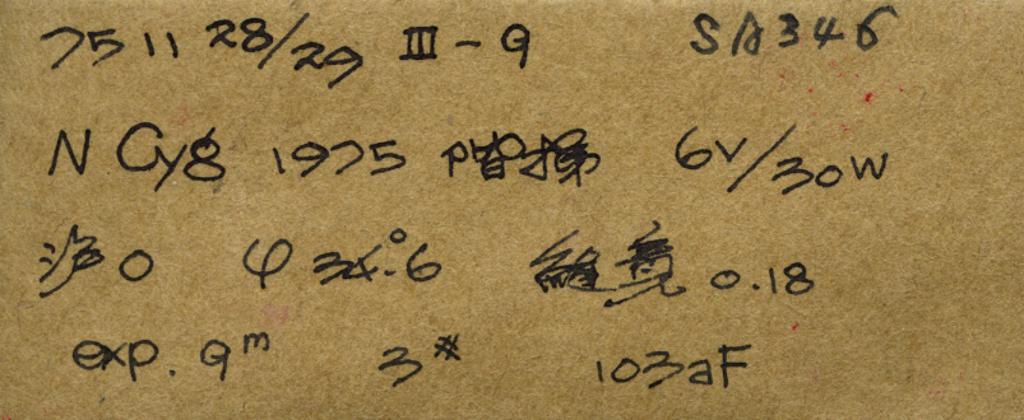 7511 28/29 III-9 SA346
N Cyg 1975 階梯 6V/30W
φ 34°.6 0.18
exp. 9m 3# 103aF